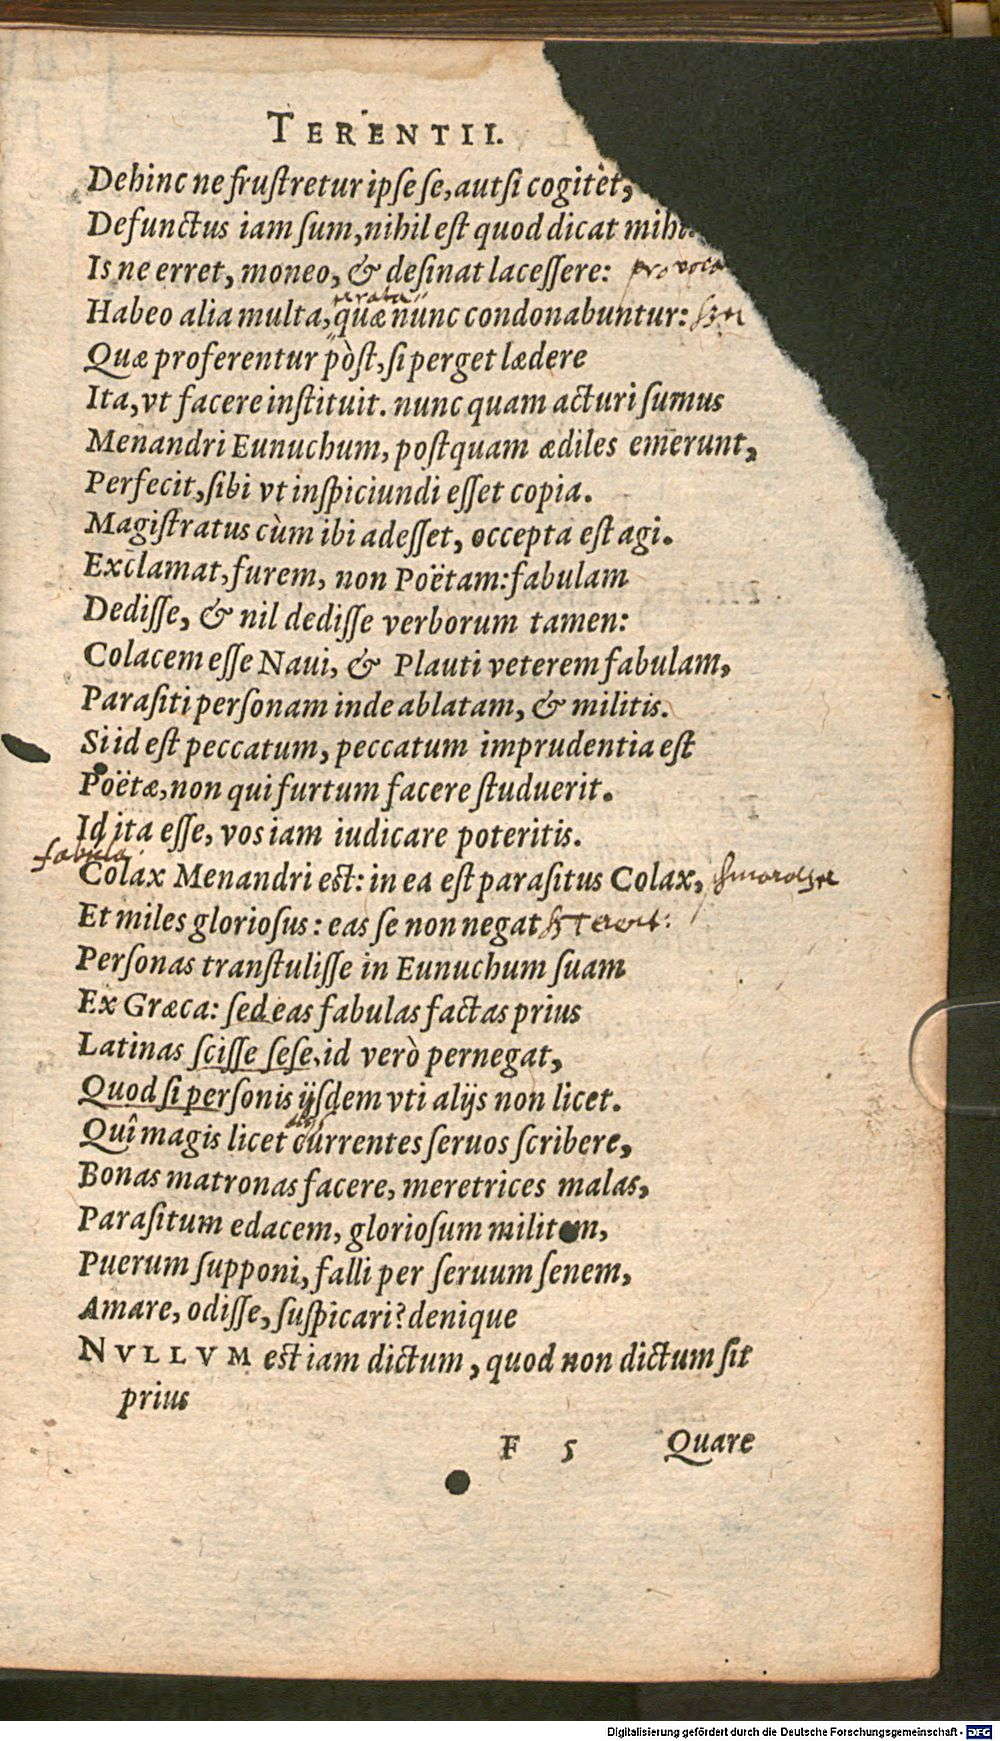 TERENTII.
Dehinc ne fruſtretur ipſe ſe, aut ſi cogitèt,
Defunctus iam ſum, nihil eſt quod dicat mihi
Is ne erret, moneo, & deſinat laceſſere: provoca
Habeo alia multa, quæ nunc condonabuntur:
Quæ proferentur pòſt, ſi perget lædere
Ita, vt facere inſtituit. nunc quam acturi ſumus
Menandri Eunuchum, poſtquam ædiles emerunt,
Perfecit, ſibi vt inſpiciundi eſſet copia.
Magiſtratus cùm ibi adeſſet, occepta eſt agi.
Exclamat, furem, non Poëtam: fabulam
Dediſſe, & nil dediſſe verborum tamen:
Colacem eſſe Naui, & Plauti veterem fabulam,
Paraſiti perſonam inde ablatam, & militis.
Si id eſt peccatum, peccatum imprudentia eſt
Poëtæ, non qui furtum facere ſtuduerit.
Id ita eſſe, vos iam iudicare poteritis.
fabula
Colax Menandri eſt: in ea eſt paraſitus Colax,
Et miles glorioſus: eas ſe non negat
Perſonas tranſtuliſſe in Eunuchum ſuam
Ex Græca: ſed eas fabulas factas prius
Latinas ſciſſe ſeſe, id verò pernegat,
Quod ſi perſonis ijſdem vti alijs non licet.
Quî magis licet currentes ſeruos ſcribere,
Bonas matronas facere, meretrices malas,
Paraſitum edacem, glorioſum militem,
Puerum ſupponi, falli per ſeruum ſenem,
Amare, odiſſe, ſuſpicari? denique
NVLLVM eſt iam dictum, quod non dictum ſit
prius
F 5 Quare
Digitalisierung gefördert durch die Deutsche Forschungsgemeinschaft - DFG